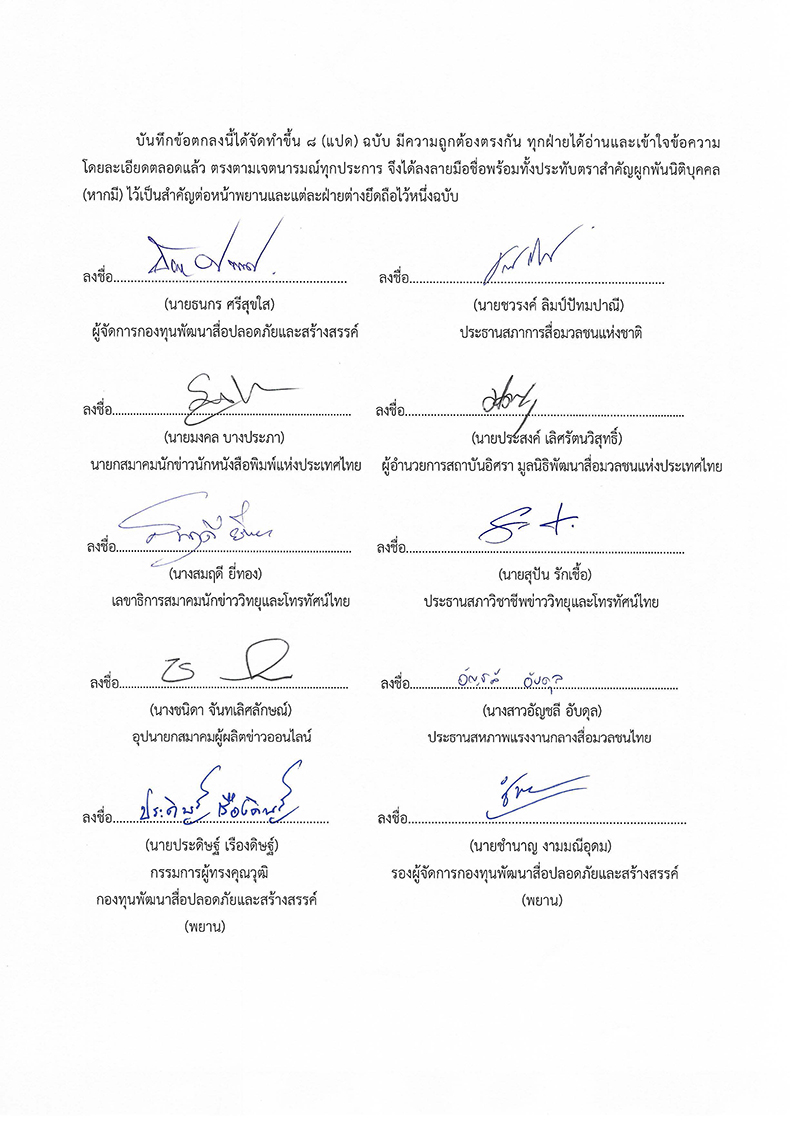 บันทึกข้อตกลงนี้ได้จัดทำขึ้น ๘ (แปด) ฉบับ มีความถูกต้องตรงกัน ทุกฝ่ายได้อ่านและเข้าใจข้อความ
โดยละเอียดตลอดแล้ว ตรงตามเจตนารมณ์ทุกประการ จึงได้ลงลายมือชื่อพร้อมทั้งประทับตราสำคัญผูกพันนิติบุคคล
(หากมี) ไว้เป็นสำคัญต่อหน้าพยานและแต่ละฝ่ายต่างยึดถือไว้หนึ่งฉบับ
ลงชื่อ
(นายธนกร ศรีสุขใส)
ผู้จัดการกองทุนพัฒนาสื่อปลอดภัยและสร้างสรรค์
ลงชื่อ
(นายชวรงค์ ลิมป์ปัทมปาณี)
ประธานสภาการสื่อมวลชนแห่งชาติ
ลงชื่อ
(นายมงคล บางประภา)
นายกสมาคมนักข่าวนักหนังสือพิมพ์แห่งประเทศไทย
ลงชื่อ
(นายประสงค์ เลิศรัตนวิสุทธิ์)
ผู้อำนวยการสถาบันอิศรา มูลนิธิพัฒนาสื่อมวลชนแห่งประเทศไทย
ลงชื่อ สมฤดี ยี่ทอง
(นางสมฤดี ยี่ทอง)
เลขาธิการสมาคมนักข่าววิทยุและโทรทัศน์ไทย
ลงชื่อ
(นายสุปัน รักเชื้อ)
ประธานสภาวิชาชีพข่าววิทยุและโทรทัศน์ไทย
ลงชื่อ
(นางชนิดา จันทเลิศลักษณ์)
อุปนายกสมาคมผู้ผลิตข่าวออนไลน์
ลงชื่อ อัญชลี อับดุล
(นางสาวอัญชลี อับดุล)
ประธานสหภาพแรงงานกลางสื่อมวลชนไทย
ลงชื่อ ประดิษฐ์ เรืองดิษฐ์
(นายประดิษฐ์ เรืองดิษฐ์)
กรรมการผู้ทรงคุณวุฒิ
กองทุนพัฒนาสื่อปลอดภัยและสร้างสรรค์
(พยาน)
ลงชื่อ
(นายชำนาญ งามมณีอุดม)
รองผู้จัดการกองทุนพัฒนาสื่อปลอดภัยและสร้างสรรค์
(พยาน)